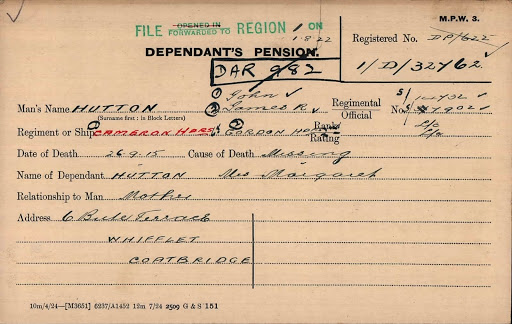 M.P.W. 3.
OPENED IN
FILE FORWARDED TO REGION 1 ON
1.8.22
DEPENDANT'S PENSION.
Registered No. DP/622
DAR 982
1/D/32762.
① John
Man's Name HUTTON ② James R.
(Surname first : in Block Letters)
Regimental Official No.
Regiment or Ship ① CAMERON HDRS ② GORDON
Rank Rating
Date of Death 26.9.15 Cause of Death Missing
Name of Dependant HUTTON Mrs Margaret
Relationship to Man Mother
Address 6 Bute Terrace
WHIFFLET
COATBRIDGE
10m/4/24—[M3651] 6237/A1452 12m 7/24 2509 G & S 151